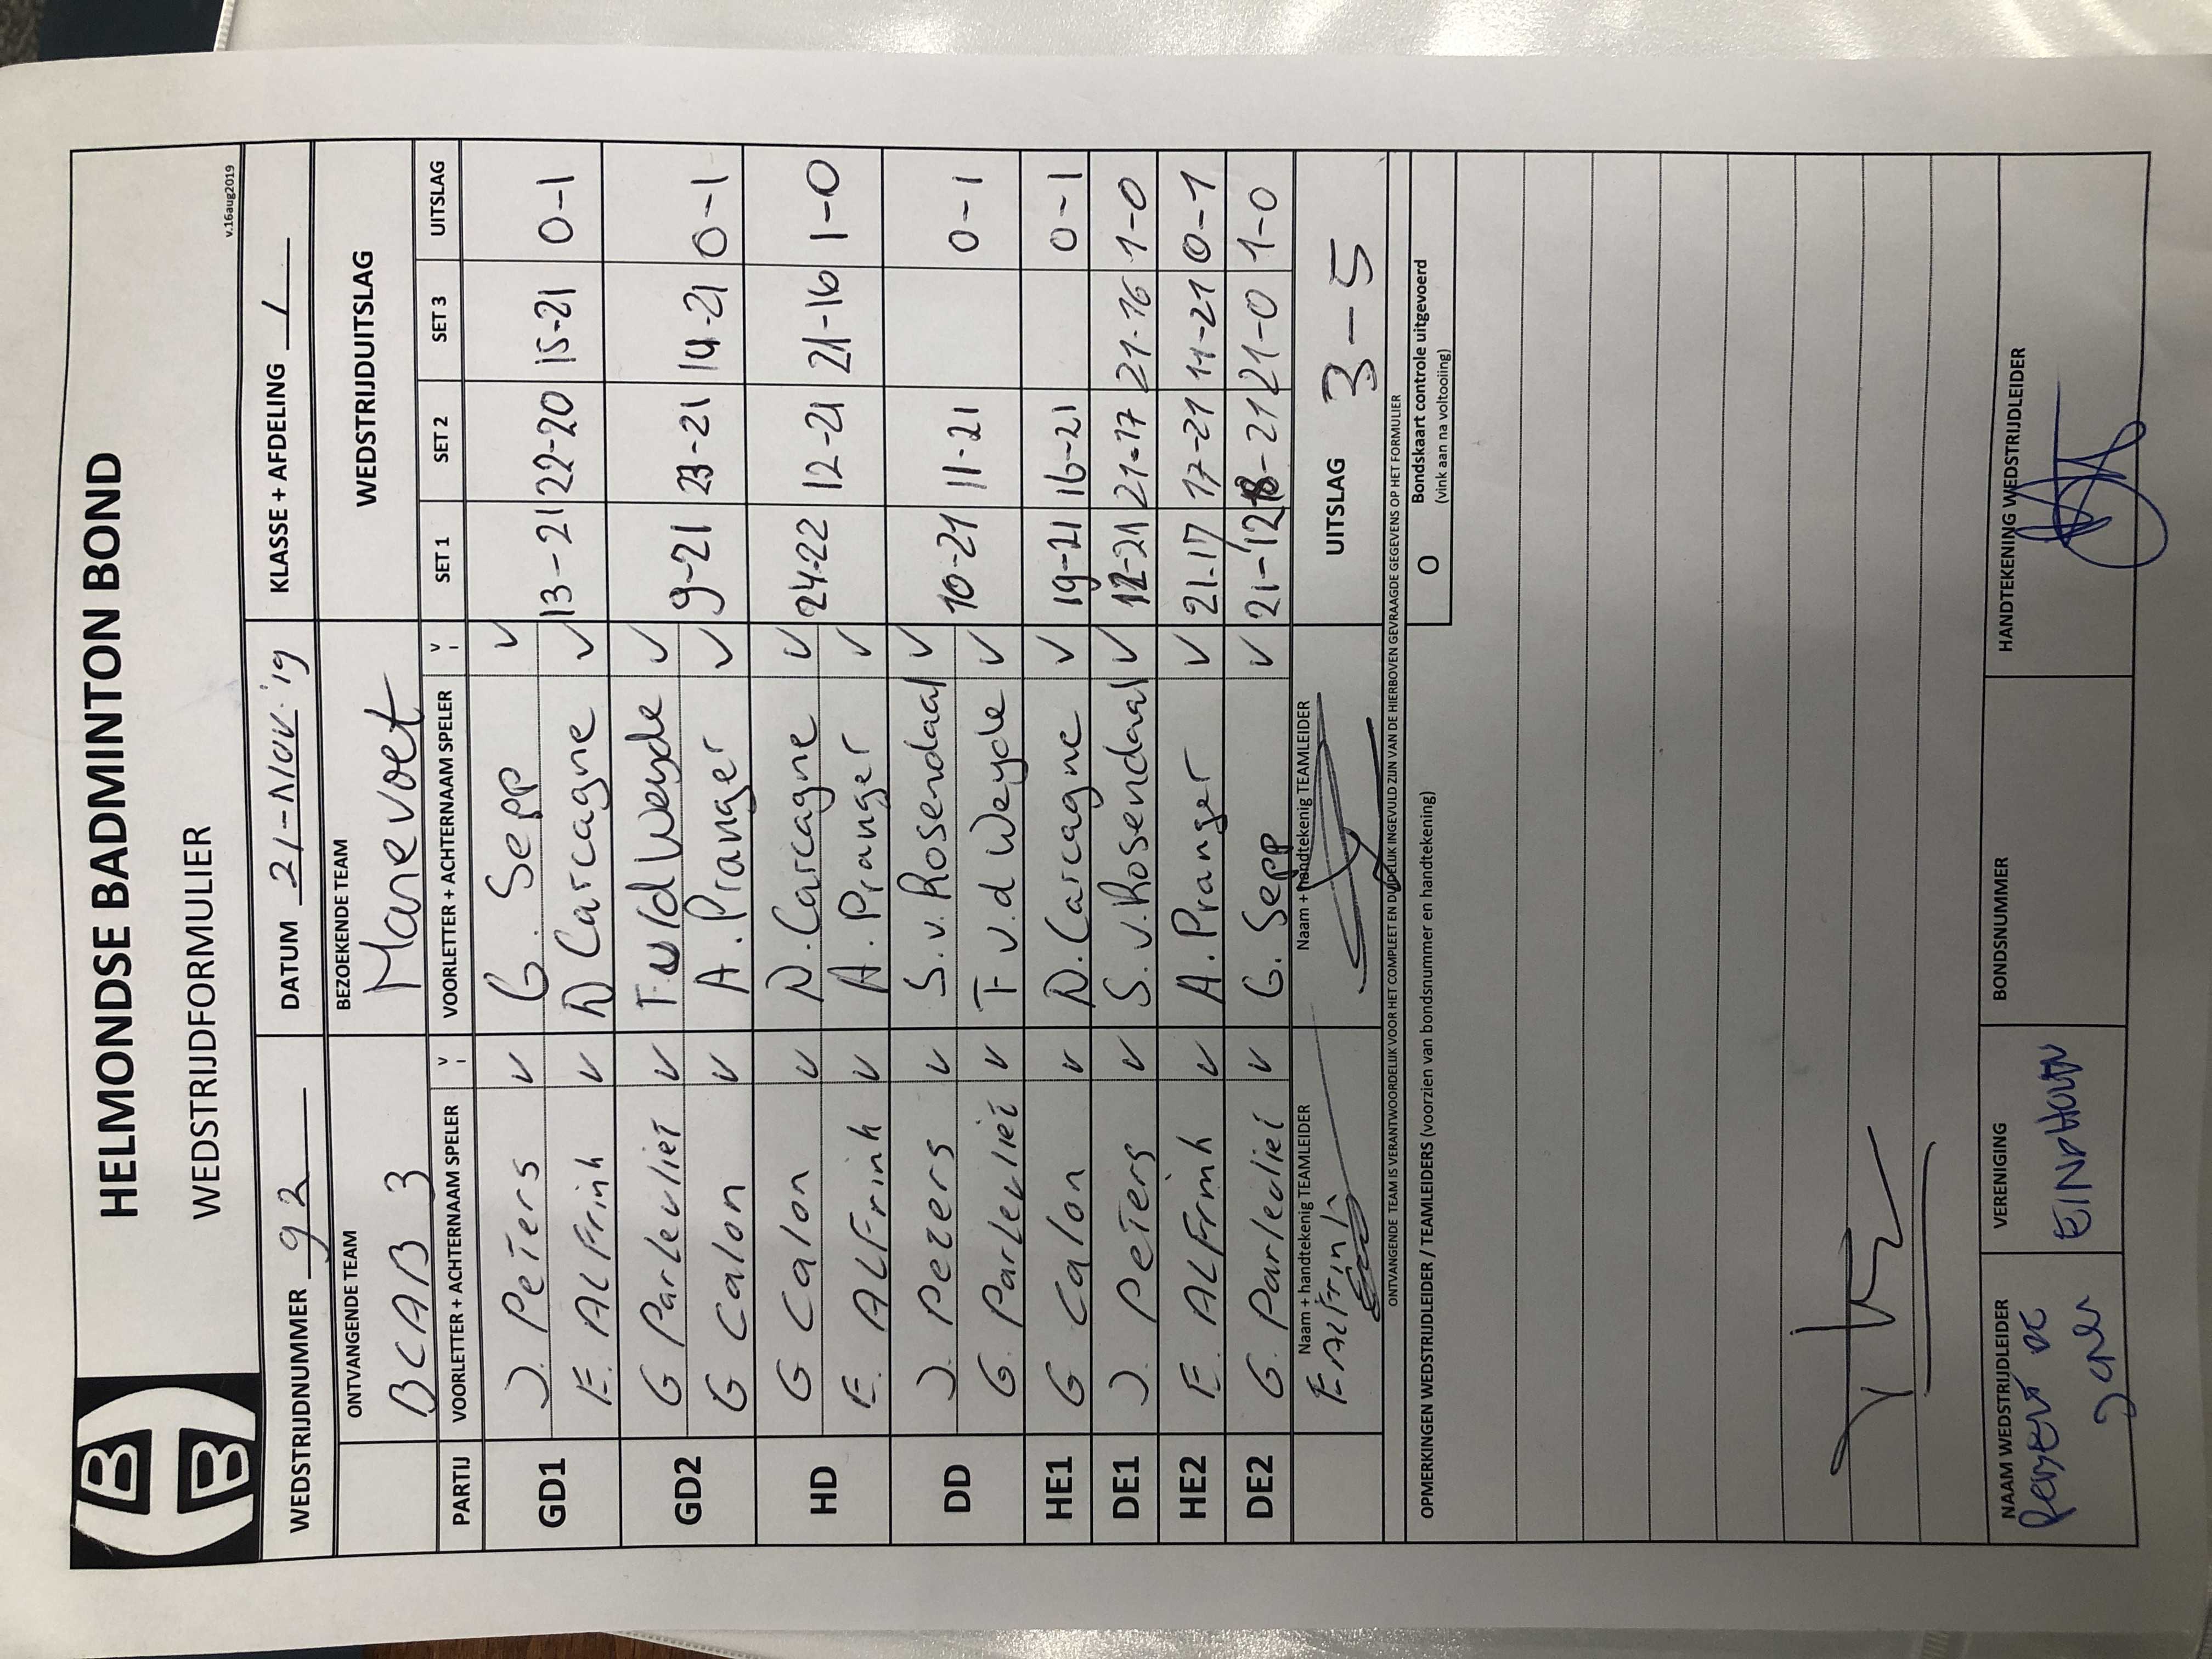 HELMONDSE BADMINTON BOND
WEDSTRIJDFORMULIER
v.16aug2019
WEDSTRIJDNUMMER 92 DATUM 21-Nov.'19 KLASSE + AFDELING 1
ONTVANGENDE TEAM BEZOEKENDE TEAM WEDSTRIJDUITSLAG
BCAB 3 Manevoet
PARTIJ VOORLETTER + ACHTERNAAM SPELER V VOORLETTER + ACHTERNAAM SPELER V SET 1 SET 2 SET 3 UITSLAG
GD1 J. Peters V G. Sepp V 13-21 22-20 15-21 0-1
E. ALFrink V D Carcagne V
GD2 G Parlevliet V T. vd Weyde V 9-21 23-21 14-21 0-1
G Calon V A. Pranger V
HD G Calon V D. Carcagne V 24-22 12-21 21-16 1-0
E. ALFrink V A. Pranger V
DD J. Peters V S. v. Rosendaal V 10-21 11-21 0-1
G. Parlevliet V T v.d Weyde V
HE1 G Calon V D. Carcagne V 19-21 16-21 0-1
DE1 J. Peters V S. v. Rosendaal V 12-21 21-17 21-16 1-0
HE2 E. ALFrink V A. Pranger V 21-17 17-21 11-21 0-1
DE2 G. Parlevliet V G. Sepp V 21-12 18-21 21-0 1-0
Naam + handtekenig TEAMLEIDER Naam + handtekenig TEAMLEIDER UITSLAG 3-5
E. ALFrink
ONTVANGENDE TEAM IS VERANTWOORDELIJK VOOR HET COMPLEET EN DUIDELIJK INGEVULD ZIJN VAN DE HIERBOVEN GEVRAAGDE GEGEVENS OP HET FORMULIER
OPMERKINGEN WEDSTRIJDLEIDER / TEAMLEIDERS (voorzien van bondsnummer en handtekening) O Bondskaart controle uitgevoerd
(vink aan na voltooiing)
NAAM WEDSTRIJDLEIDER VERENIGING BONDSNUMMER HANDTEKENING WEDSTRIJDLEIDER
EINDHOUTN